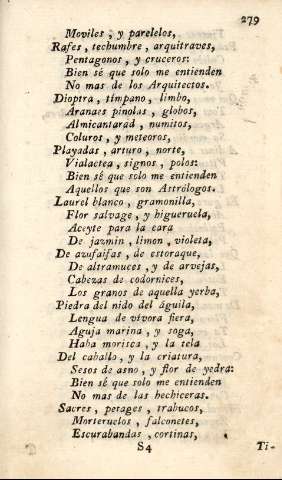 279
Moviles, y parelelos,
Rafes, techumbre, arquitraves,
Pentagonos, y cruceros:
Bien sé que solo me entienden
No mas de los Arquitectos.
Dioptra, tímpano, limbo,
Aranaes pinolas, globos,
Almicantarad, numitos,
Coluros, y meteoros,
Playadas, arturo, norte,
Vialactea, signos, polos:
Bien sé que solo me entienden
Aquellos que son Astrólogos.
Laurel blanco, gramonilla,
Flor salvage, y higueruela,
Aceyte para la cara
De jazmin, limon, violeta,
De azufaifas, de estoraque,
De altramuces, y de arvejas,
Cabezas de codornices,
Los granos de aquella yerba,
Piedra del nido del águila,
Lengua de vívora fiera,
Aguja marina, y soga,
Haba morisca, y la tela
Del caballo, y la criatura,
Sesos de asno, y flor de yedra:
Bien sé que solo me entienden
No mas de las hechiceras.
Sacres, petages, trabucos,
Morteruelos, falconetes,
Escurabandas, cortinas,
S4 Ti-